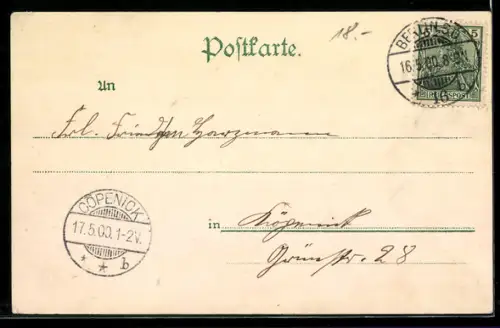 18.-
Postkarte.
BERLIN S.O.
16.5.00.8-9N.
* 16
5
REICHSPOST
An
Frl. Friedchen Harzmann
COPENICK
17.5.00.1-2V.
* * b
in Köpenick
Grünstr. 28